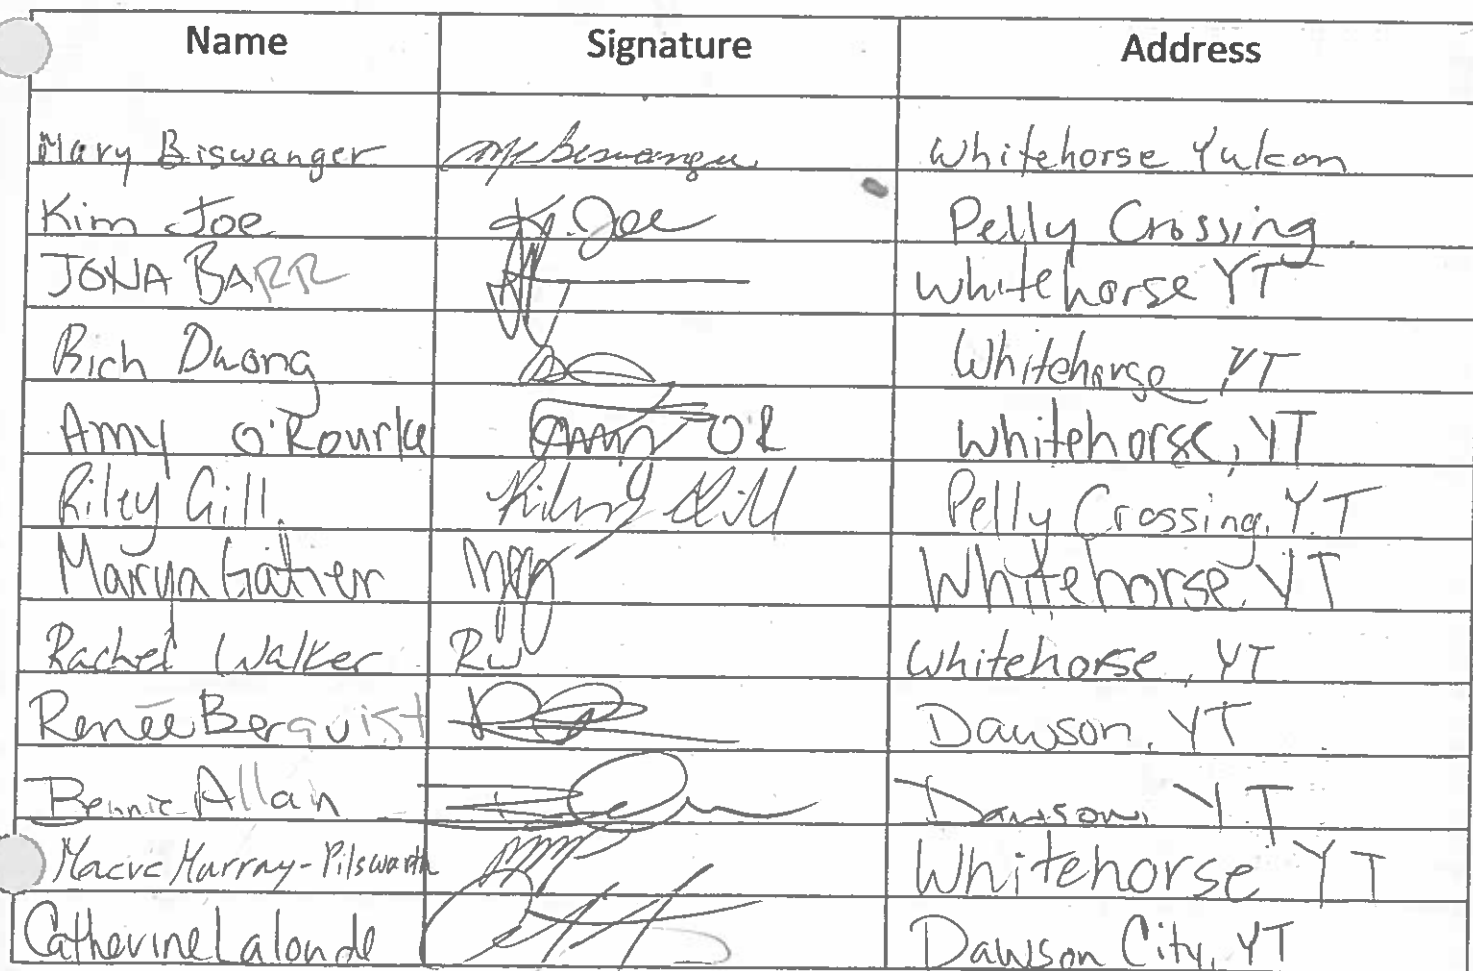 Name Signature Address
Mary Biswanger Whitehorse Yukon
Kim Joe K. Joe Pelly Crossing
JONA BARR Whitehorse YT
Bich Duong Whitehorse YT
Amy O'Rourke Amy OR Whitehorse, YT
Riley Gill Riley Gill Pelly Crossing, YT
Whitehorse, YT
Rachel Walker RW Whitehorse, YT
Renée Bergquist Dawson, YT
Allan Dawson, YT
Maeve Murray-Pilsworth Whitehorse YT
Catherine Lalonde Dawson City, YT